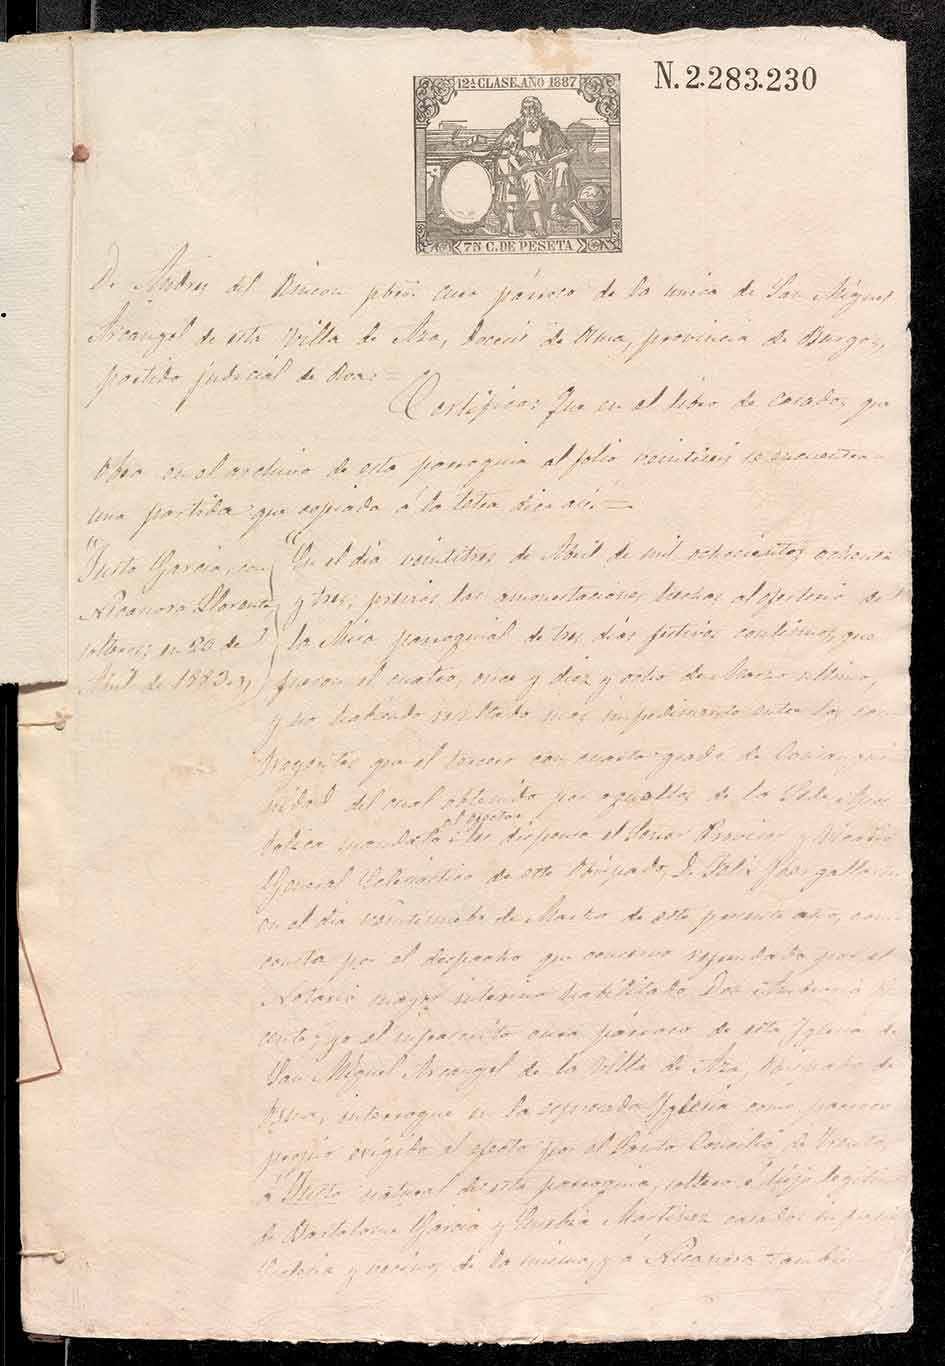 12ª CLASE. AÑO 1887
N. 2.283.230
75 C. DE PESETA
Dn Andres del Rincon pbro cura párroco de la unica de San Miguel
Arcangel de esta Villa de Aza, Diocesis de Osma, provincia de Burgos,
partido judicial de Roa: =
Certifico: Que en el libro de casados que
obra en el archivo de esta parroquia al folio veintiseis se encuentra
una partida que copiada á la letra dice asi: =
"Justo Garcia, con
Nicanora Llorente
solteros; en 23 de
Abril de 1883.
"En el dia veintitres de Abril de mil ochocientos ochenta
y tres, previas las amonestaciones hechas al ofertorio de
la Misa parroquial de tres dias festivos continuos, que
fueron el cuatro, once y diez y ocho de Marzo ultimo,
y no habiendo resultado mas impedimento entre los con-
trayentes que el tercero con cuarto grado de Consangui-
nidad del cual obtenido por aquellos de la Sede Apos
tolica mandato al efecto les dispenso el Señor Provisor y Vicario
General Eclesiástico de este Obispado, D. Felix
en el dia veintinueve de Marzo de este presente año, como
consta por el despacho que conservo refrendado por el
Notario mayor interino habilitado Don
yo el infrascrito cura párroco de esta Iglesia de
San Miguel Arcangel de la Villa de Aza, Obispado de
Osma, interrogué en la expresada Iglesia como parroco
propio exigido al efecto por el Santo Concilio de Trento,
á Justo natural de esta parroquia, soltero é hijo legitimo
de Bartolome Garcia y Eusebia Martinez casados in facie
Eclesia y vecinos de la misma, y á Nicanora tambien